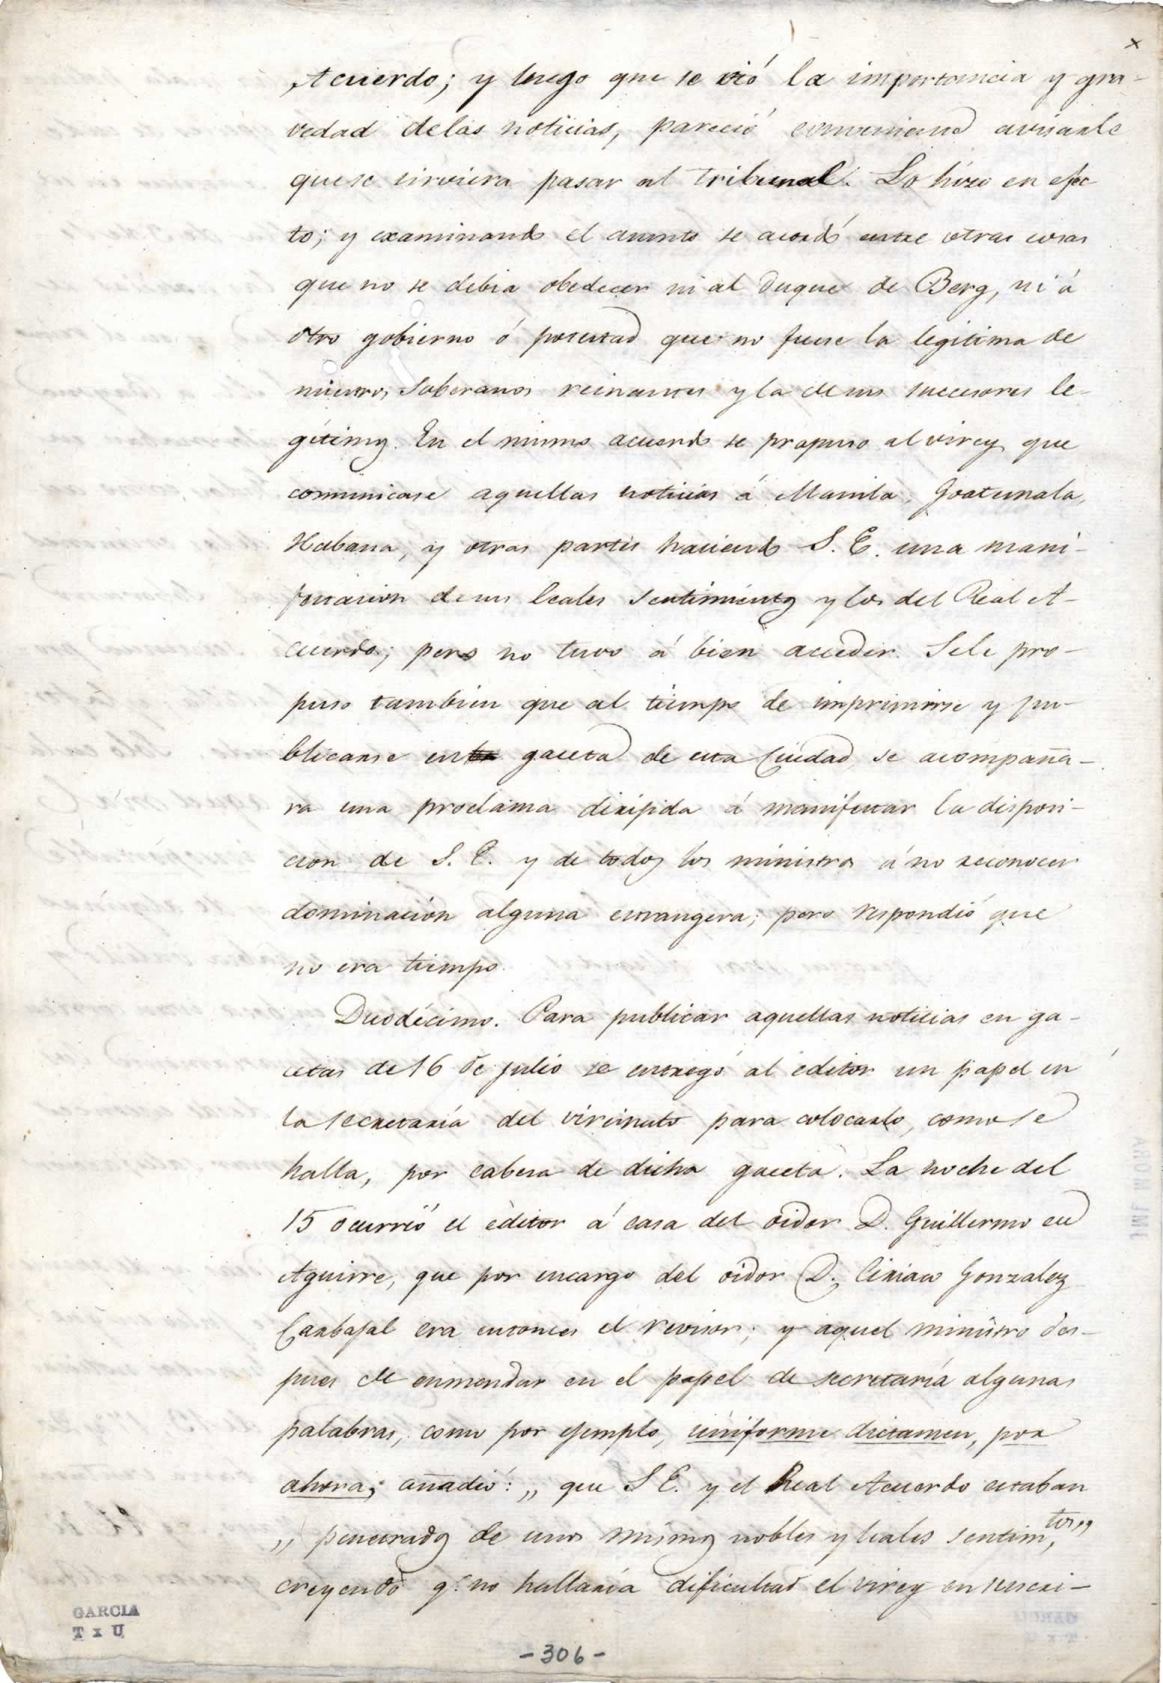 x
Acuerdo; y luego que se vió la importancia y gra-
vedad delas noticias, pareció conveniente avisarle
quese sirviera pasar al tribunal. Lo hizo en efec
to; y examinando el asunto se acordó entre otras cosas
que no se debia obedecer ni al Duque de Berg, ni á
otro gobierno ó potestad que no fuese la legitima de
nuestros Soberanos reinantes y la de sus succesores le-
gítimos. En el mismo acuerdo se propuso al virey que
comunicase aquellas noticias á Manila, Goatemala,
Habana, y otras partes haciendo S. E. una mani-
festacion de sus leales sentimientos y los del Real A-
cuerdo; pero no tuvo á bien acceder. Sele pro-
puso tambien que al tiempo de imprimirse y pu-
blicarse en gaceta de esta Ciudad, se acompaña-
ra una proclama dirijida á manifestar la disposi-
cion de S. E. y de todos los ministros á no reconocer
dominacion alguna estrangera; pero respondió que
no era tiempo.
Duodécimo. Para publicar aquellas noticias en ga-
cetas de 16 de julio se entregó al editor un papel en
la secretaría del vireinato para colocarlo, como se
halla, por cabesa de dicha gaceta. La noche del
15 ocurrió el editor á casa del oidor D. Guillermo de
Aguirre, que por encargo del oidor D. Ciriaco Gonzalez
Carbajal era entonces el revisor; y aquel ministro des-
pues de enmendar en el papel de secretaría algunas
palabras, como por ejemplo, uniforme dictamen, por
ahora; añadió: „ que S E. y el Real Acuerdo estaban
„ penetrados de unos mismos nobles y leales sentim.tos„
creyendo q.e no hallaría dificultad el virey en suscri-
GARCIA
T x U
-306-
JML MORA